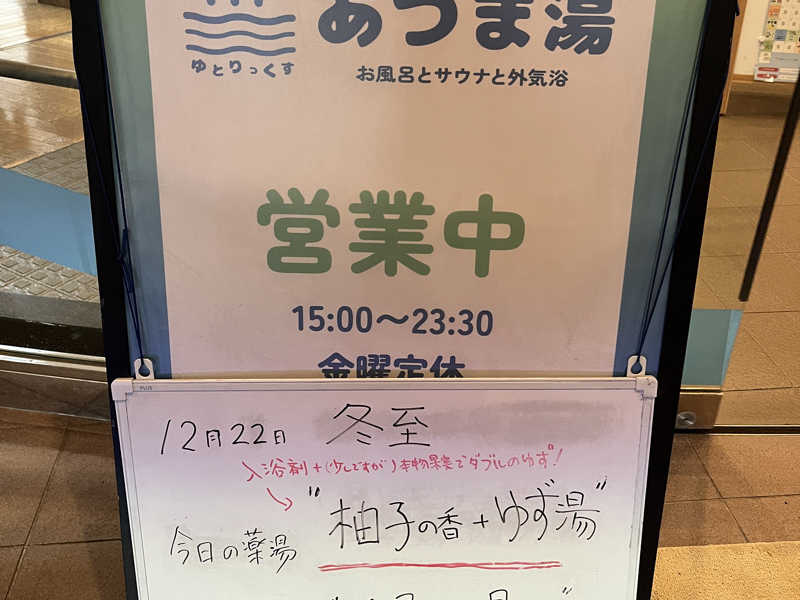 あづま湯
ゆとりっくす
お風呂とサウナと外気浴
営業中
15:00〜23:30
金曜定休
PLUS
12月22日 冬至
入浴剤+(少しですが)本物果実でダブルのゆず!
今日の薬湯 "柚子の香+ゆず湯"